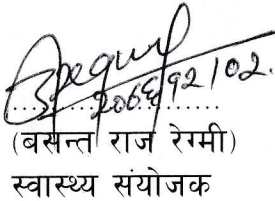 २०६६/१२/०२
(बसन्त राज रेग्मी)
स्वास्थ्य संयोजक